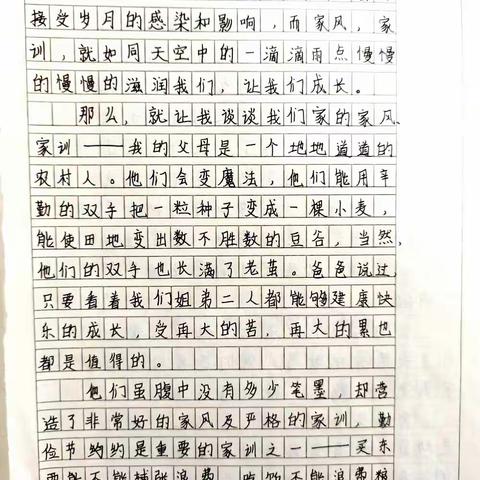 接受岁月的感染和影响，而家风，家
训，就如同天空中的一滴滴雨点慢慢
的慢慢的滋润我们，让我们成长。
那么，就让我谈谈我们家的家风、
家训——我的父母是一个地地道道的
农村人。他们会变魔法，他们能用辛
勤的双手把一粒种子变成一棵小麦，
能使田地变出数不胜数的豆谷，当然，
他们的双手也长满了老茧。爸爸说过，
只要看着我们姐弟二人都能够健康快
乐的成长，受再大的苦，再大的累也
都是值得的。
他们虽腹中没有多少笔墨，却营
造了非常好的家风及严格的家训，勤
俭节约约是重要的家训之一——买东
西都不能铺张浪费，吃饭不能浪费粮